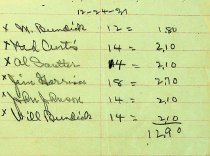 12-24-21
x M. Bundick 12 = 1.80
x Fred Curtis 14 = 2.10
x Al Sautter 14 = 2.10
x Jim Harrison 18 = 2.70
x 14 = 2.10
x Will Bundick 14 = 2.10
12.90